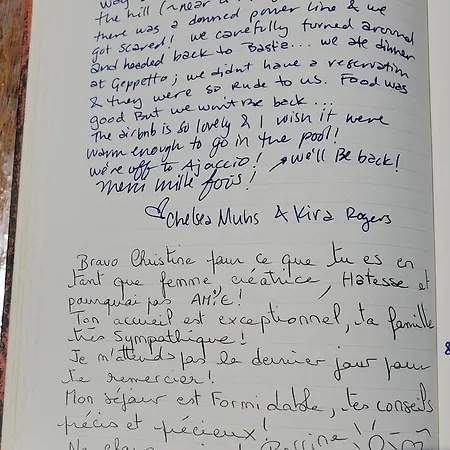 the hill (near a
there was a downed power line & we
got scared! we carefully turned around
and headed back to Bastia... we ate dinner
at Geppetto; we didnt have a reservation
& they were so rude to us. Food was
good But we won't Be back...
The airbnb is so lovely & I wish it were
warm enough to go in the pool!
we're off to Ajaccio! → we'll Be back!
Merci mille fois!
Chelsea Muhs & Kira Rogers
Bravo Christine pour ce que tu es en
tant que femme, créatrice, Hôtesse et
pourquoi pas AMie!
Ton accueil est exceptionnel, ta famille
très Sympathique!
Je n'attends pas le dernier jour pour
te remercier!
Mon séjour est Formidable, tes conseils
précis et précieux!
Ne change